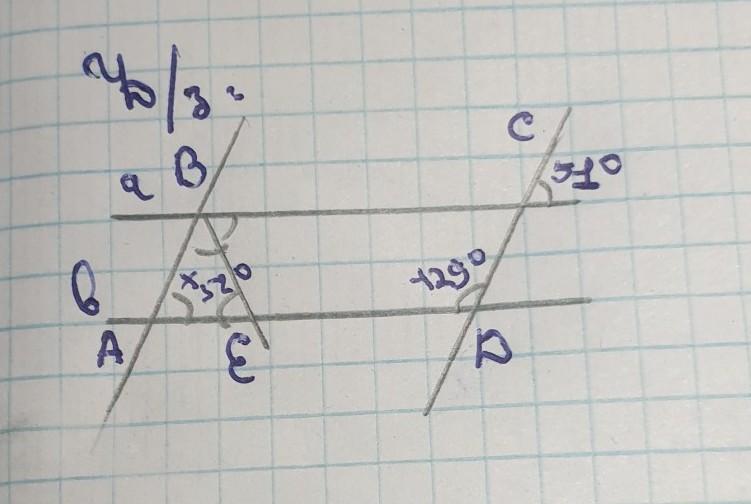 Д/з:
C
a B 51°
x 52° 129°
b
A E D